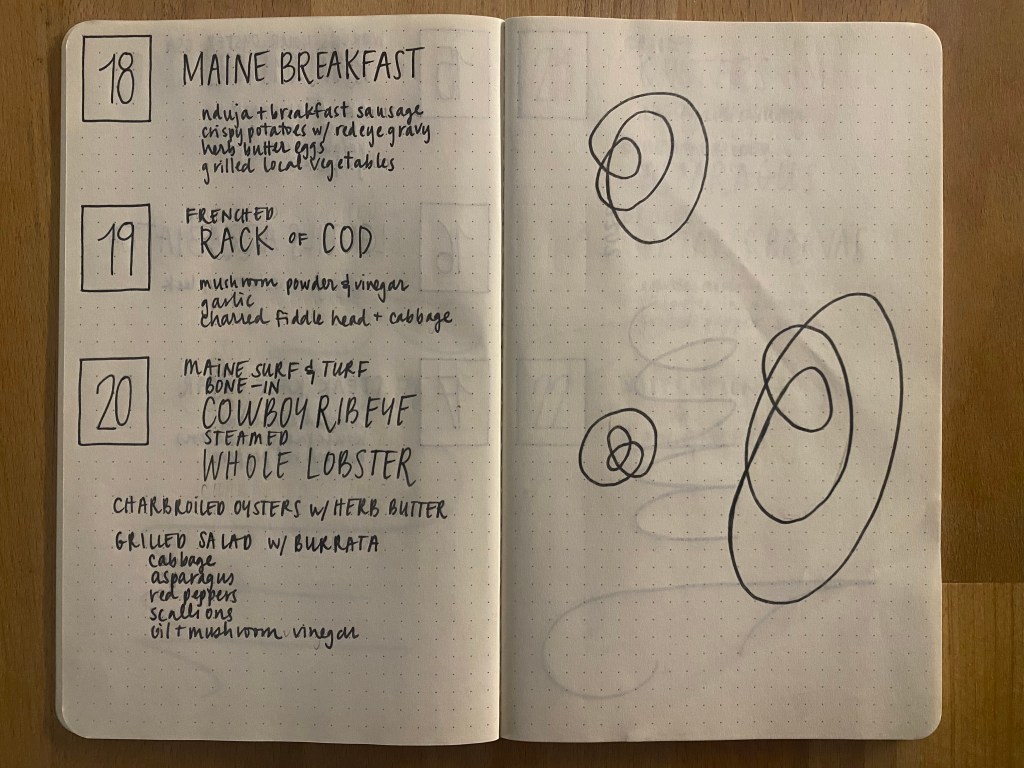 18
MAINE BREAKFAST
nduja + breakfast sausage
crispy potatoes w/ redeye gravy
herb butter eggs
grilled local vegetables
19
FRENCHED
RACK OF COD
mushroom powder & vinegar
garlic
charred fiddle head + cabbage
20
MAINE SURF & TURF
BONE-IN
COWBOY RIBEYE
STEAMED
WHOLE LOBSTER
CHARBROILED OYSTERS W/ HERB BUTTER
GRILLED SALAD W/ BURRATA
cabbage
asparagus
red peppers
scallions
oil + mushroom vinegar